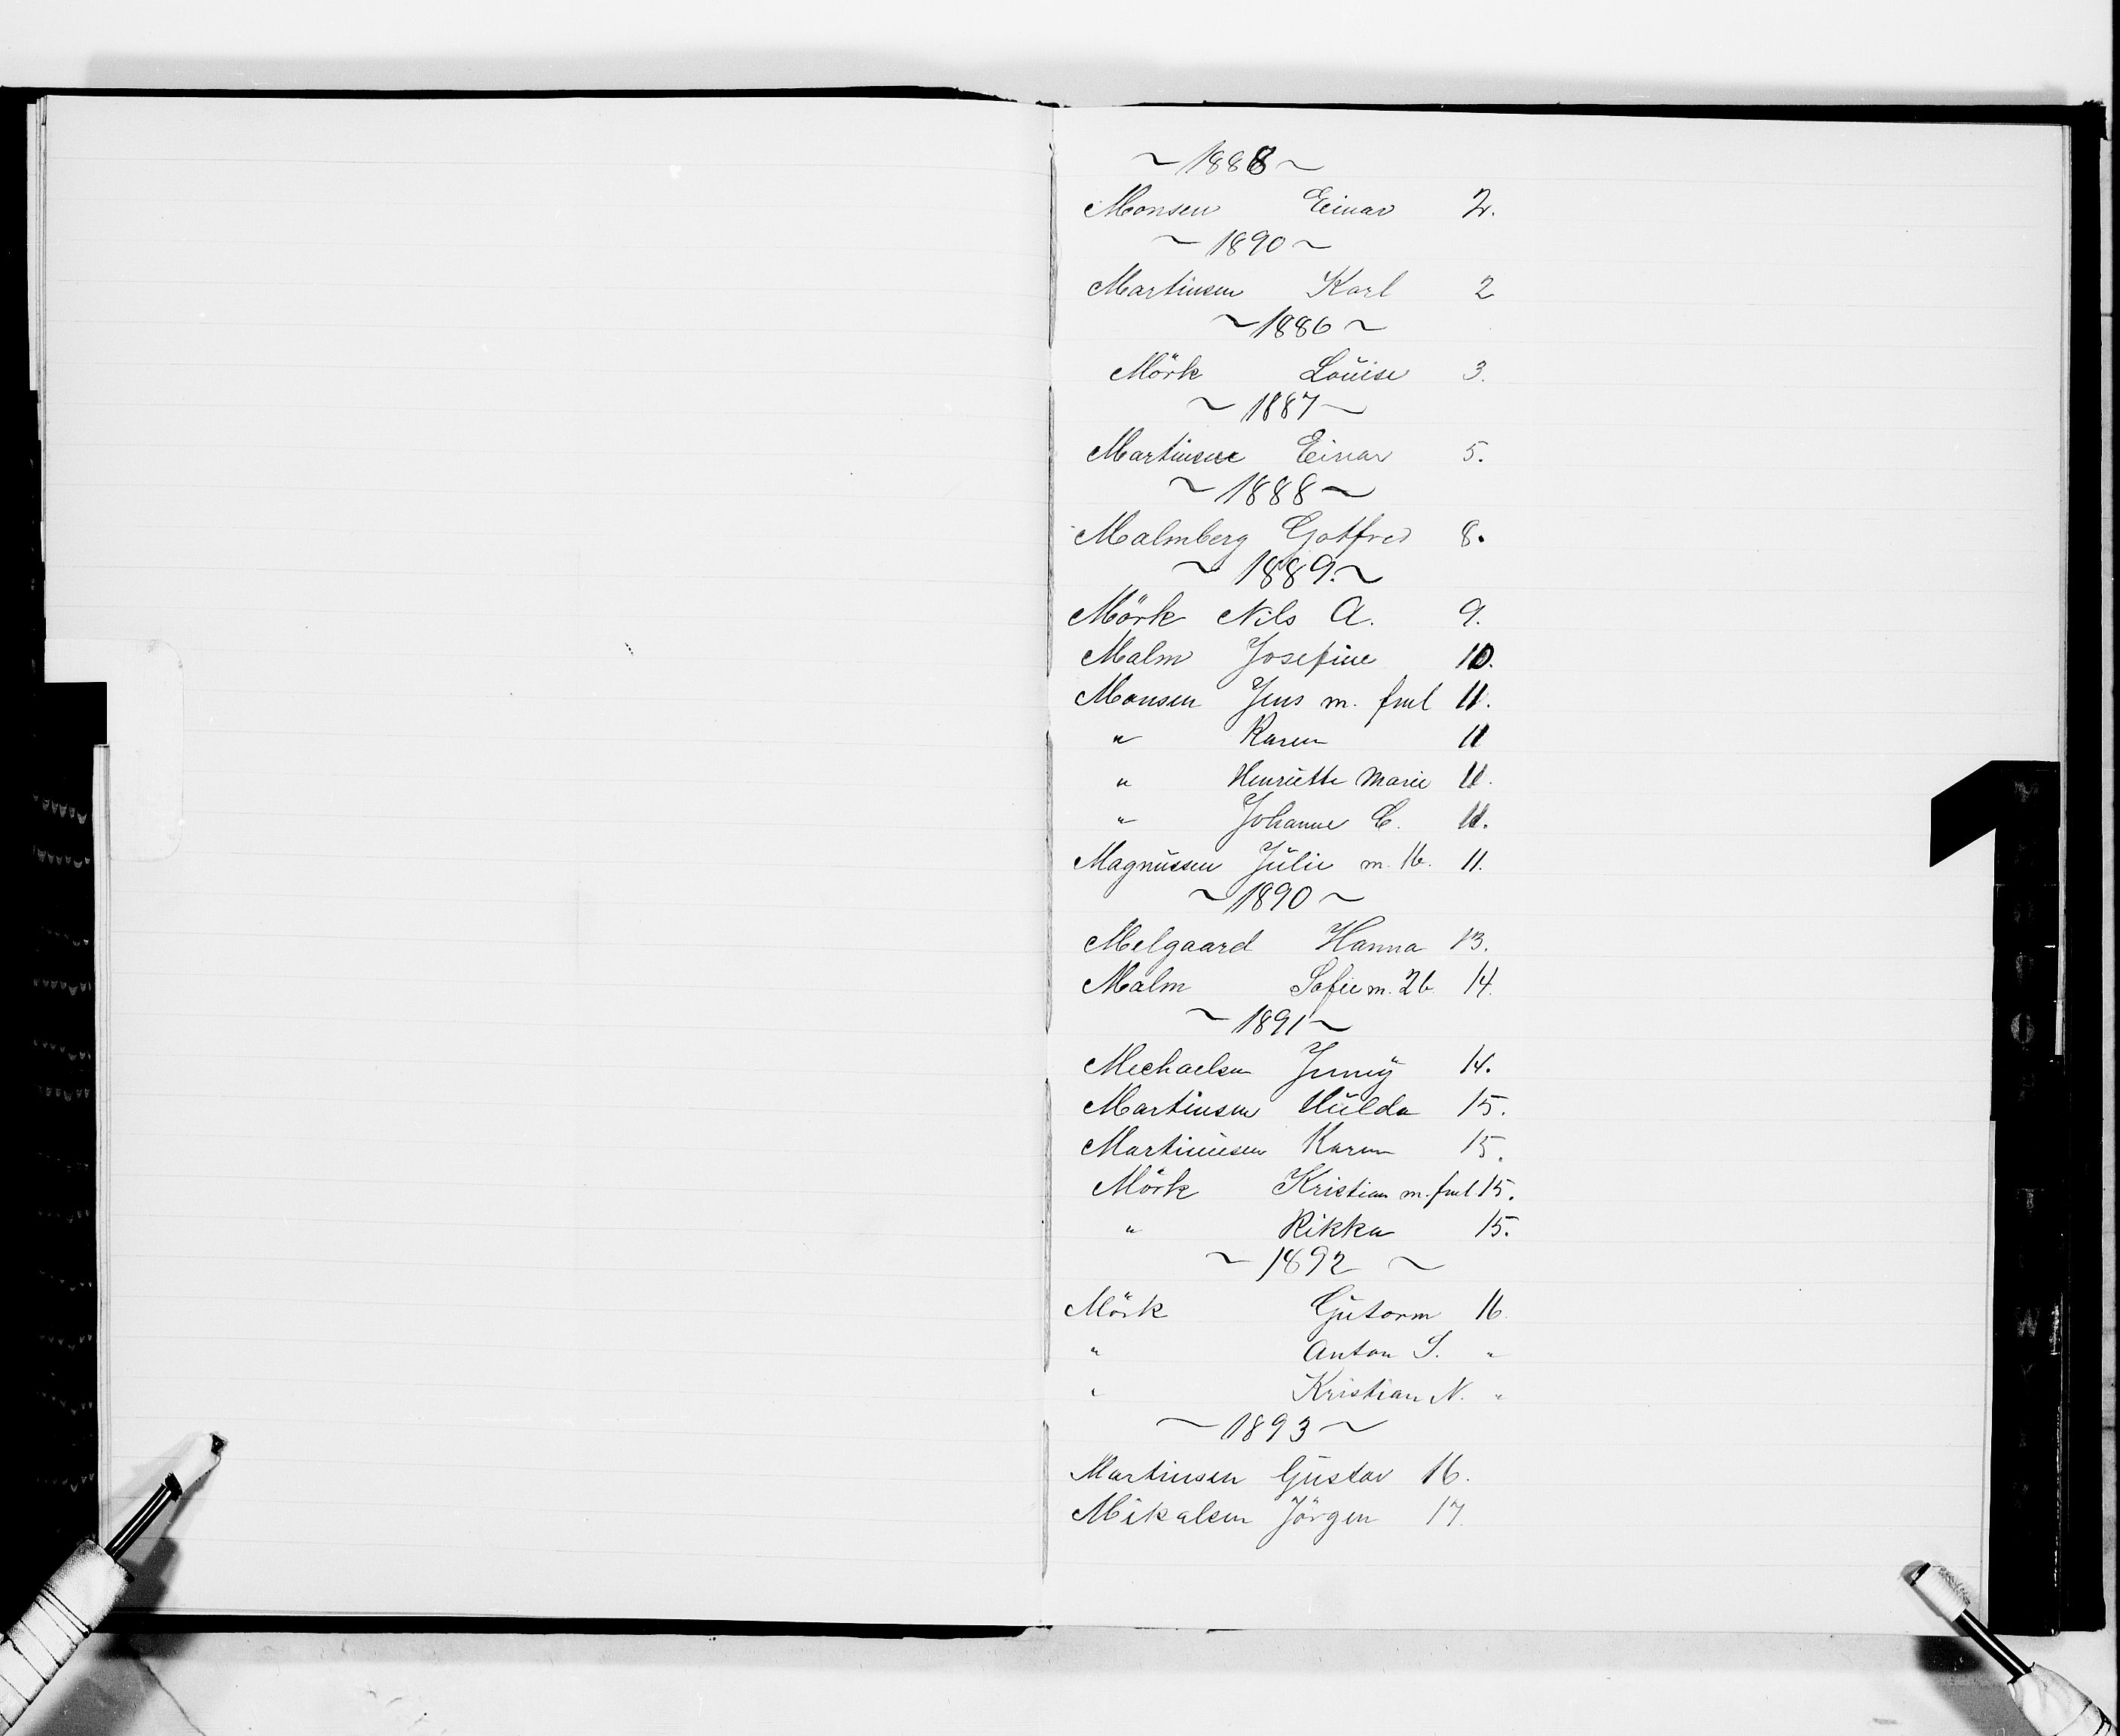 ~ 1888 ~
Monsen Einar 2.
~ 1890 ~
Martinsen Karl 2
~ 1886 ~
Mörk Louise 3.
~ 1887 ~
Martinsen Einar 5.
~ 1888 ~
Malmberg Gotfred 8.
~ 1889. ~
Mörk Nils A. 9.
Malm Josefine 10.
Monsen Jens m. fml 11.
" Karen 11
" Henriette Marie 11.
" Johanne C. 11.
Magnussen Julie m. 1b. 11.
~ 1890 ~
Melgaard Hanna 13.
Malm Sofie m. 2b. 14.
~ 1891 ~
Mechaelsen Jenny 14.
Martinsen Hulda 15.
Martiniusen Karen 15.
Mörk Kristian m. fml 15.
" Rikka 15.
~ 1892 ~
Mörk Gutorm 16.
" Anton S. "
" Kristian N. "
~ 1893 ~
Martinsen Gustav 16.
Mikalsen Jörgen 17.